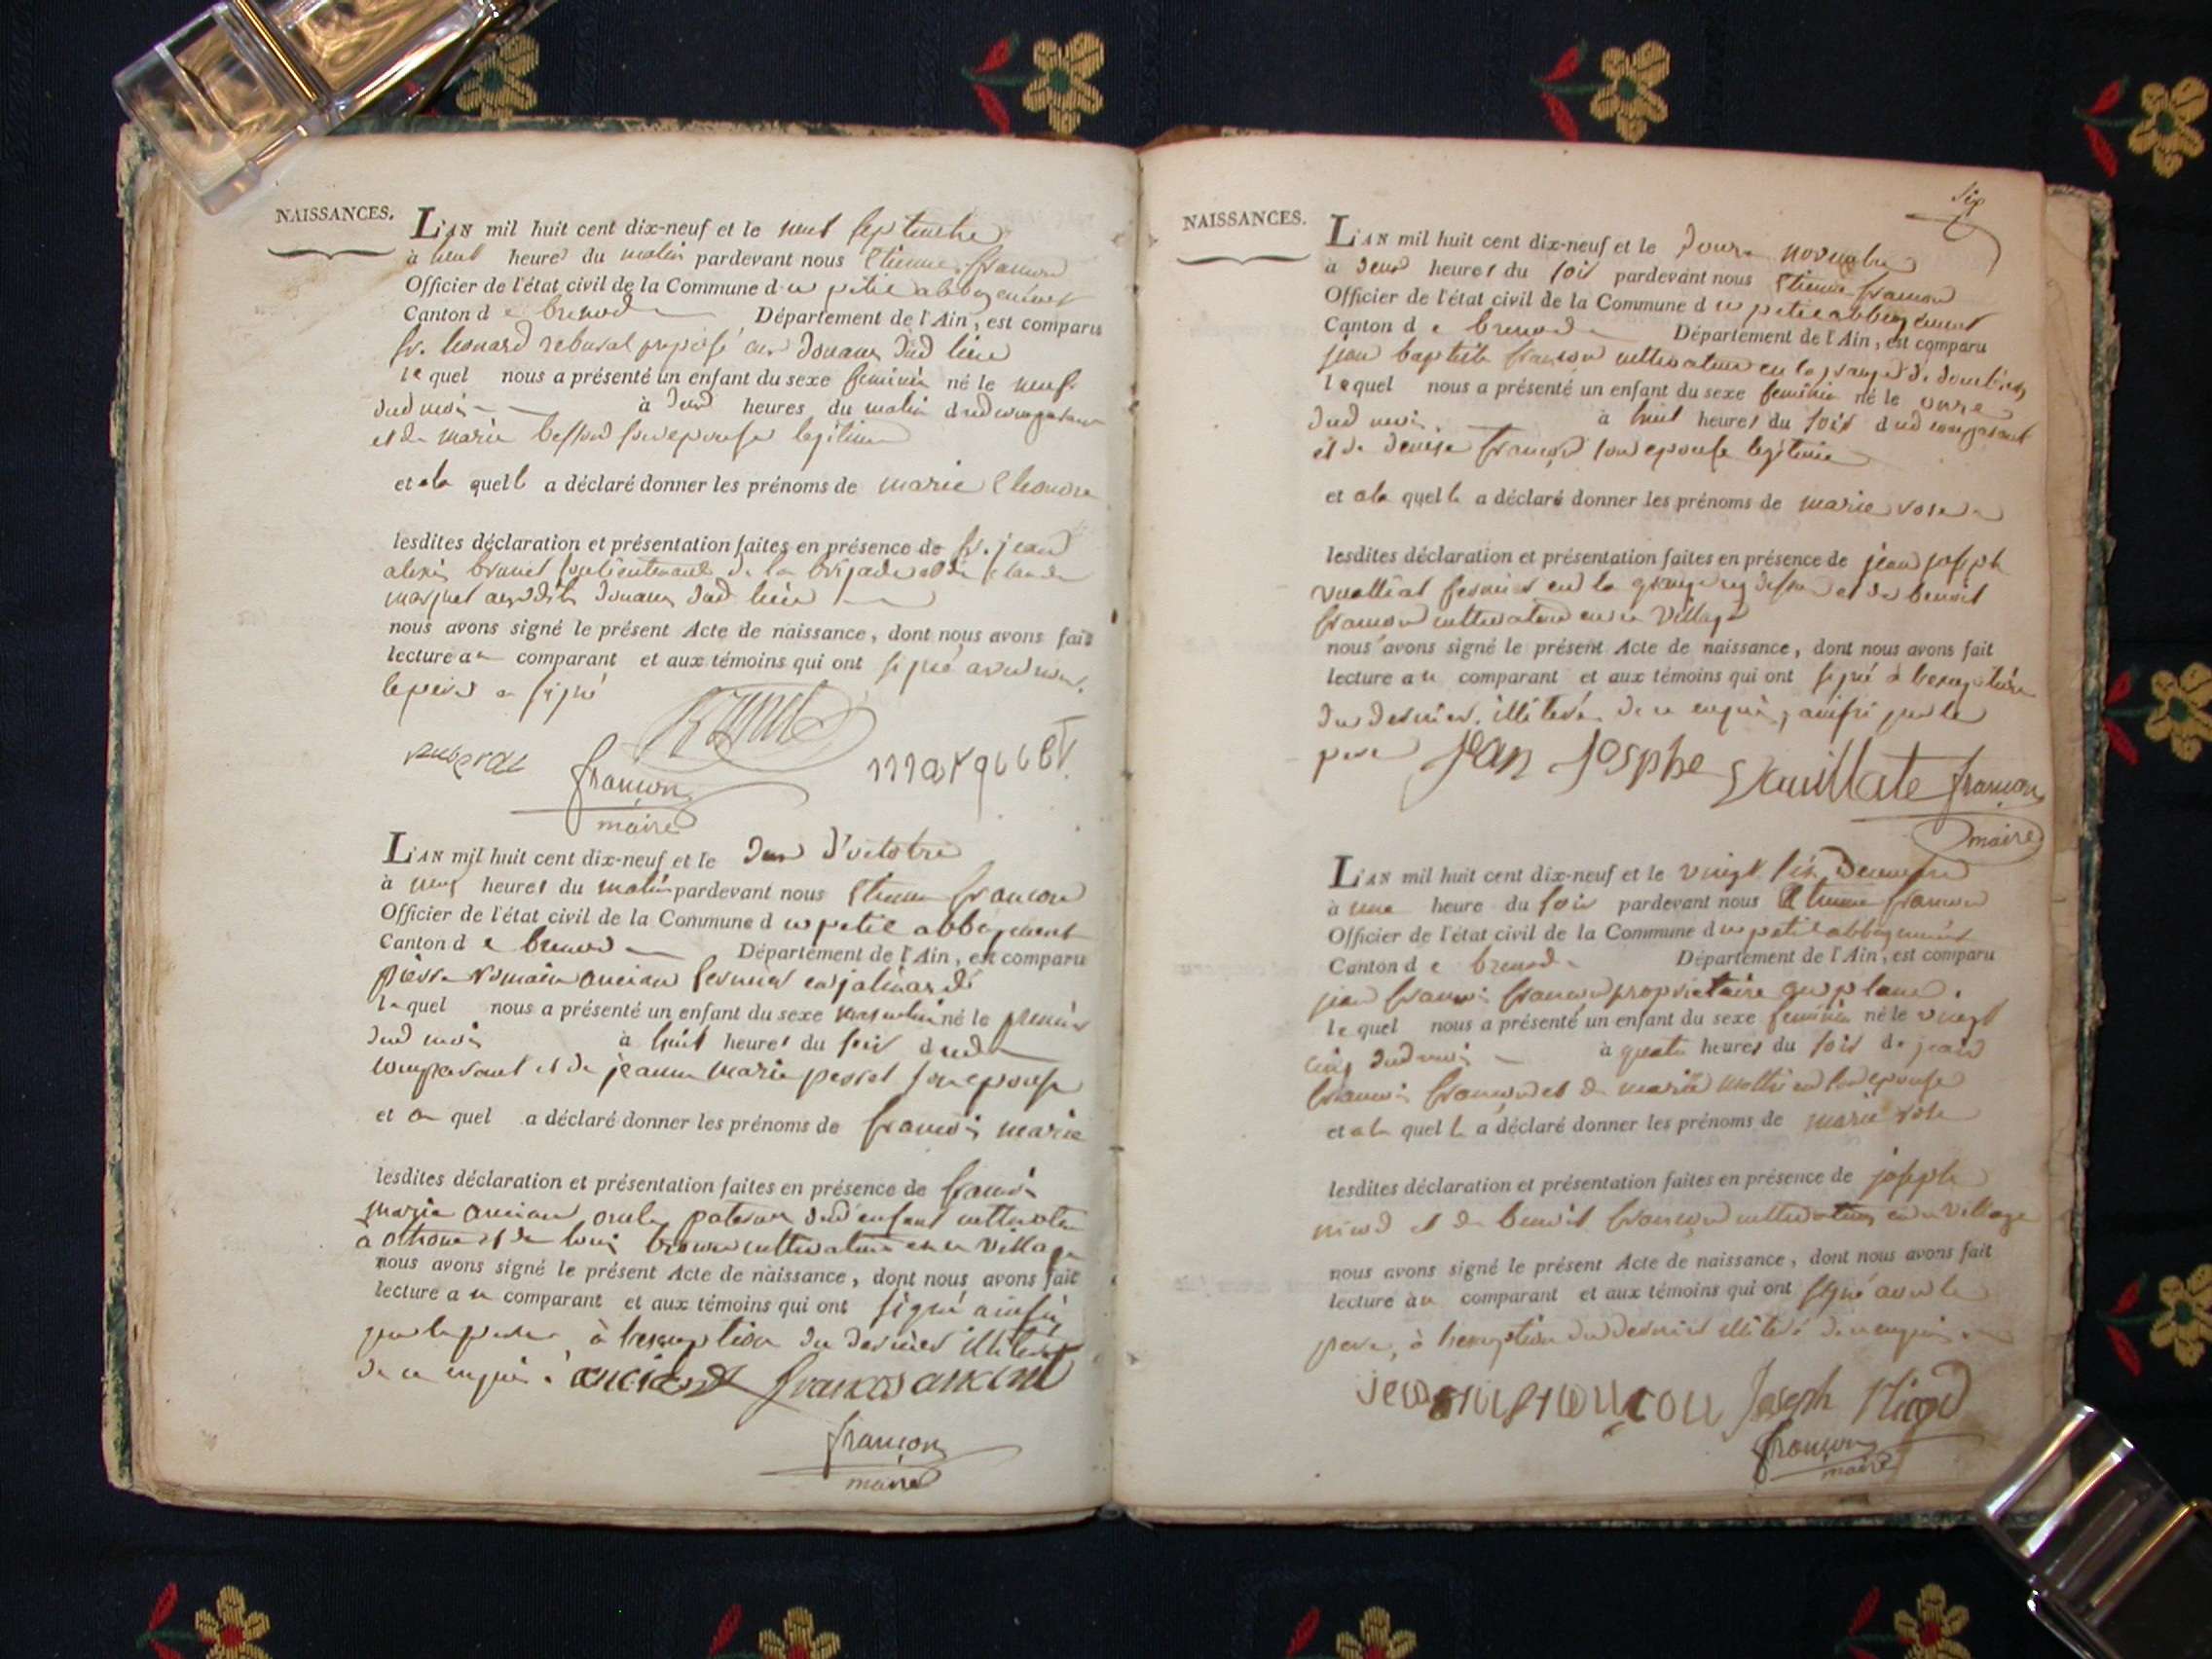 NAISSANCES.
L'AN mil huit cent dix-neuf et le neuf Septembre
à heures du matin pardevant nous Etienne françon
Officier de l'état civil de la Commune d u petit abbergement
Canton d e brenod Département de l'Ain, est comparu
Sr. léonard préposé aux Douanes dud lieu
lequel nous a présenté un enfant du sexe feminin né le neuf
dud mois à deux heures du matin dud comparant
et de marie son epouse legitime
et a la quelle a déclaré donner les prénoms de marie Eleonore
lesdites déclaration et présentation faites en présence de Sr. jean
alexis brunet souslieutenant de la brigade et de claude
marquet auxdites Douanes dud lieu
nous avons signé le présent Acte de naissance, dont nous avons fait
lecture au comparant et aux témoins qui ont signé avec nous.
le pere a signé
marquuet
françon
maire
L'AN mil huit cent dix-neuf et le deux d'octobre
à neuf heures du matin pardevant nous Etienne françon
Officier de l'état civil de la Commune d u petit abbergement
Canton d e brenod Département de l'Ain, est comparu
pierre Romain ancian fermier en jalinard
lequel nous a présenté un enfant du sexe masculin né le premier
dud mois à huit heures du soir dud
comparant et de jeanne marie perret son epouse
et au quel a déclaré donner les prénoms de francois marie
lesdites déclaration et présentation faites en présence de francois
marie ancian oncle paternel dud enfant cultivateur
a et de louis cultivateur en ce village
nous avons signé le présent Acte de naissance, dont nous avons fait
lecture au comparant et aux témoins qui ont signé ainsi
que le pere à l'exception du dernier illiteré
de ce enquis.
françon
maire
Six
NAISSANCES.
L'AN mil huit cent dix-neuf et le douze novembre
à deux heures du soir pardevant nous Etienne françon
Officier de l'état civil de la Commune d u petit abbergement
Canton d e brenod Département de l'Ain, est comparu
jean baptiste françon cultivateur en la grange de
lequel nous a présenté un enfant du sexe feminin né le onze
dud mois à huit heures du soir dud comparant
et de denise françon son epouse legitime
et a la quelle a déclaré donner les prénoms de marie rose
lesdites déclaration et présentation faites en présence de jean joseph
fermier en la grange et de benoit
françon cultivateur en ce village
nous avons signé le présent Acte de naissance, dont nous avons fait
lecture au comparant et aux témoins qui ont signé à l'exception
du dernier, illiteré de ce enquis, ainsi que le
pere jean josphe vuillate françon
maire
L'AN mil huit cent dix-neuf et le vingt six Decembre
à une heure du soir pardevant nous Etienne françon
Officier de l'état civil de la Commune d u petit abbergement
Canton d e brenod Département de l'Ain, est comparu
jean francois françon proprietaire
lequel nous a présenté un enfant du sexe feminin né le vingt
cinq dud mois à quatre heures du soir de jean
francois françon et de marie son epouse
et a la quelle a déclaré donner les prénoms de marie rose
lesdites déclaration et présentation faites en présence de joseph
niod et de benoit françon cultivateurs en ce village
nous avons signé le présent Acte de naissance, dont nous avons fait
lecture au comparant et aux témoins qui ont signé avec le
pere, à l'exception du dernier illiteré de ce enquis.
Joseph Niod
françon
maire